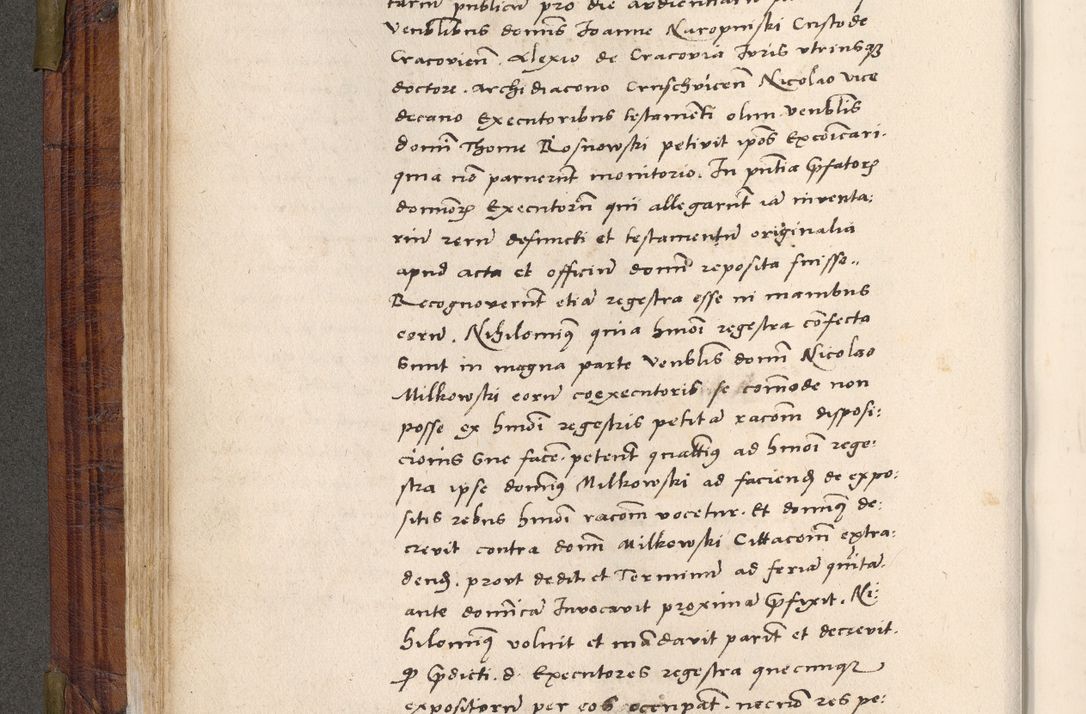 tariu publicu pro die audientiaru
venblibus domis Joanne Naropniski Custode
Cracovien̄. Alexio de Cracovia Juris utriusqꝫ
doctore. Archidiacono Cruschvicen̄ Nicolao vice
decano Executoribus testamēti olim venblis
domi Thome Rosnowski petivit ip̄os Excōicari.
quia nō paruerūt monitorio. In pn̄tia p̄fatoꝝ
domoꝝ Executorū qui allegarūt iā inventa:
riū rerū defuncti et testamentū originalia
apud acta et officiū domi reposita fuisse..
Recognoverūt etiā regestra esse ni manibus
eorū. Nihilomiꝰ quia hmōi regestra cōfecta
sunt in magna parte venblis domi Nicolao
Milkowski eorū coexecutoris se com̄ode non
posse ex hmōi regestris petitā racōm disposi:
cionis sue facē. petent quattiꝰ ad hmōi rege:
stra ipse domiꝰ Milkowski ad faciend̄ de expo:
sitis rebus hmōi racōm vocetur. Et domiꝰ de:
crevit contra dom̄ Milkowski Cittacōm extra:
dend̄. prout dedit et Terminū ad feriā quītā
ante domicā Invocavit proximā p̄fixit. Ni:
hilomiꝰ voluit et mādavit parit et decrevit.
ꝙ p̄dicti. d. Executores regestra quecunqꝫ
expositorū per eos occupat. necnō res pe: